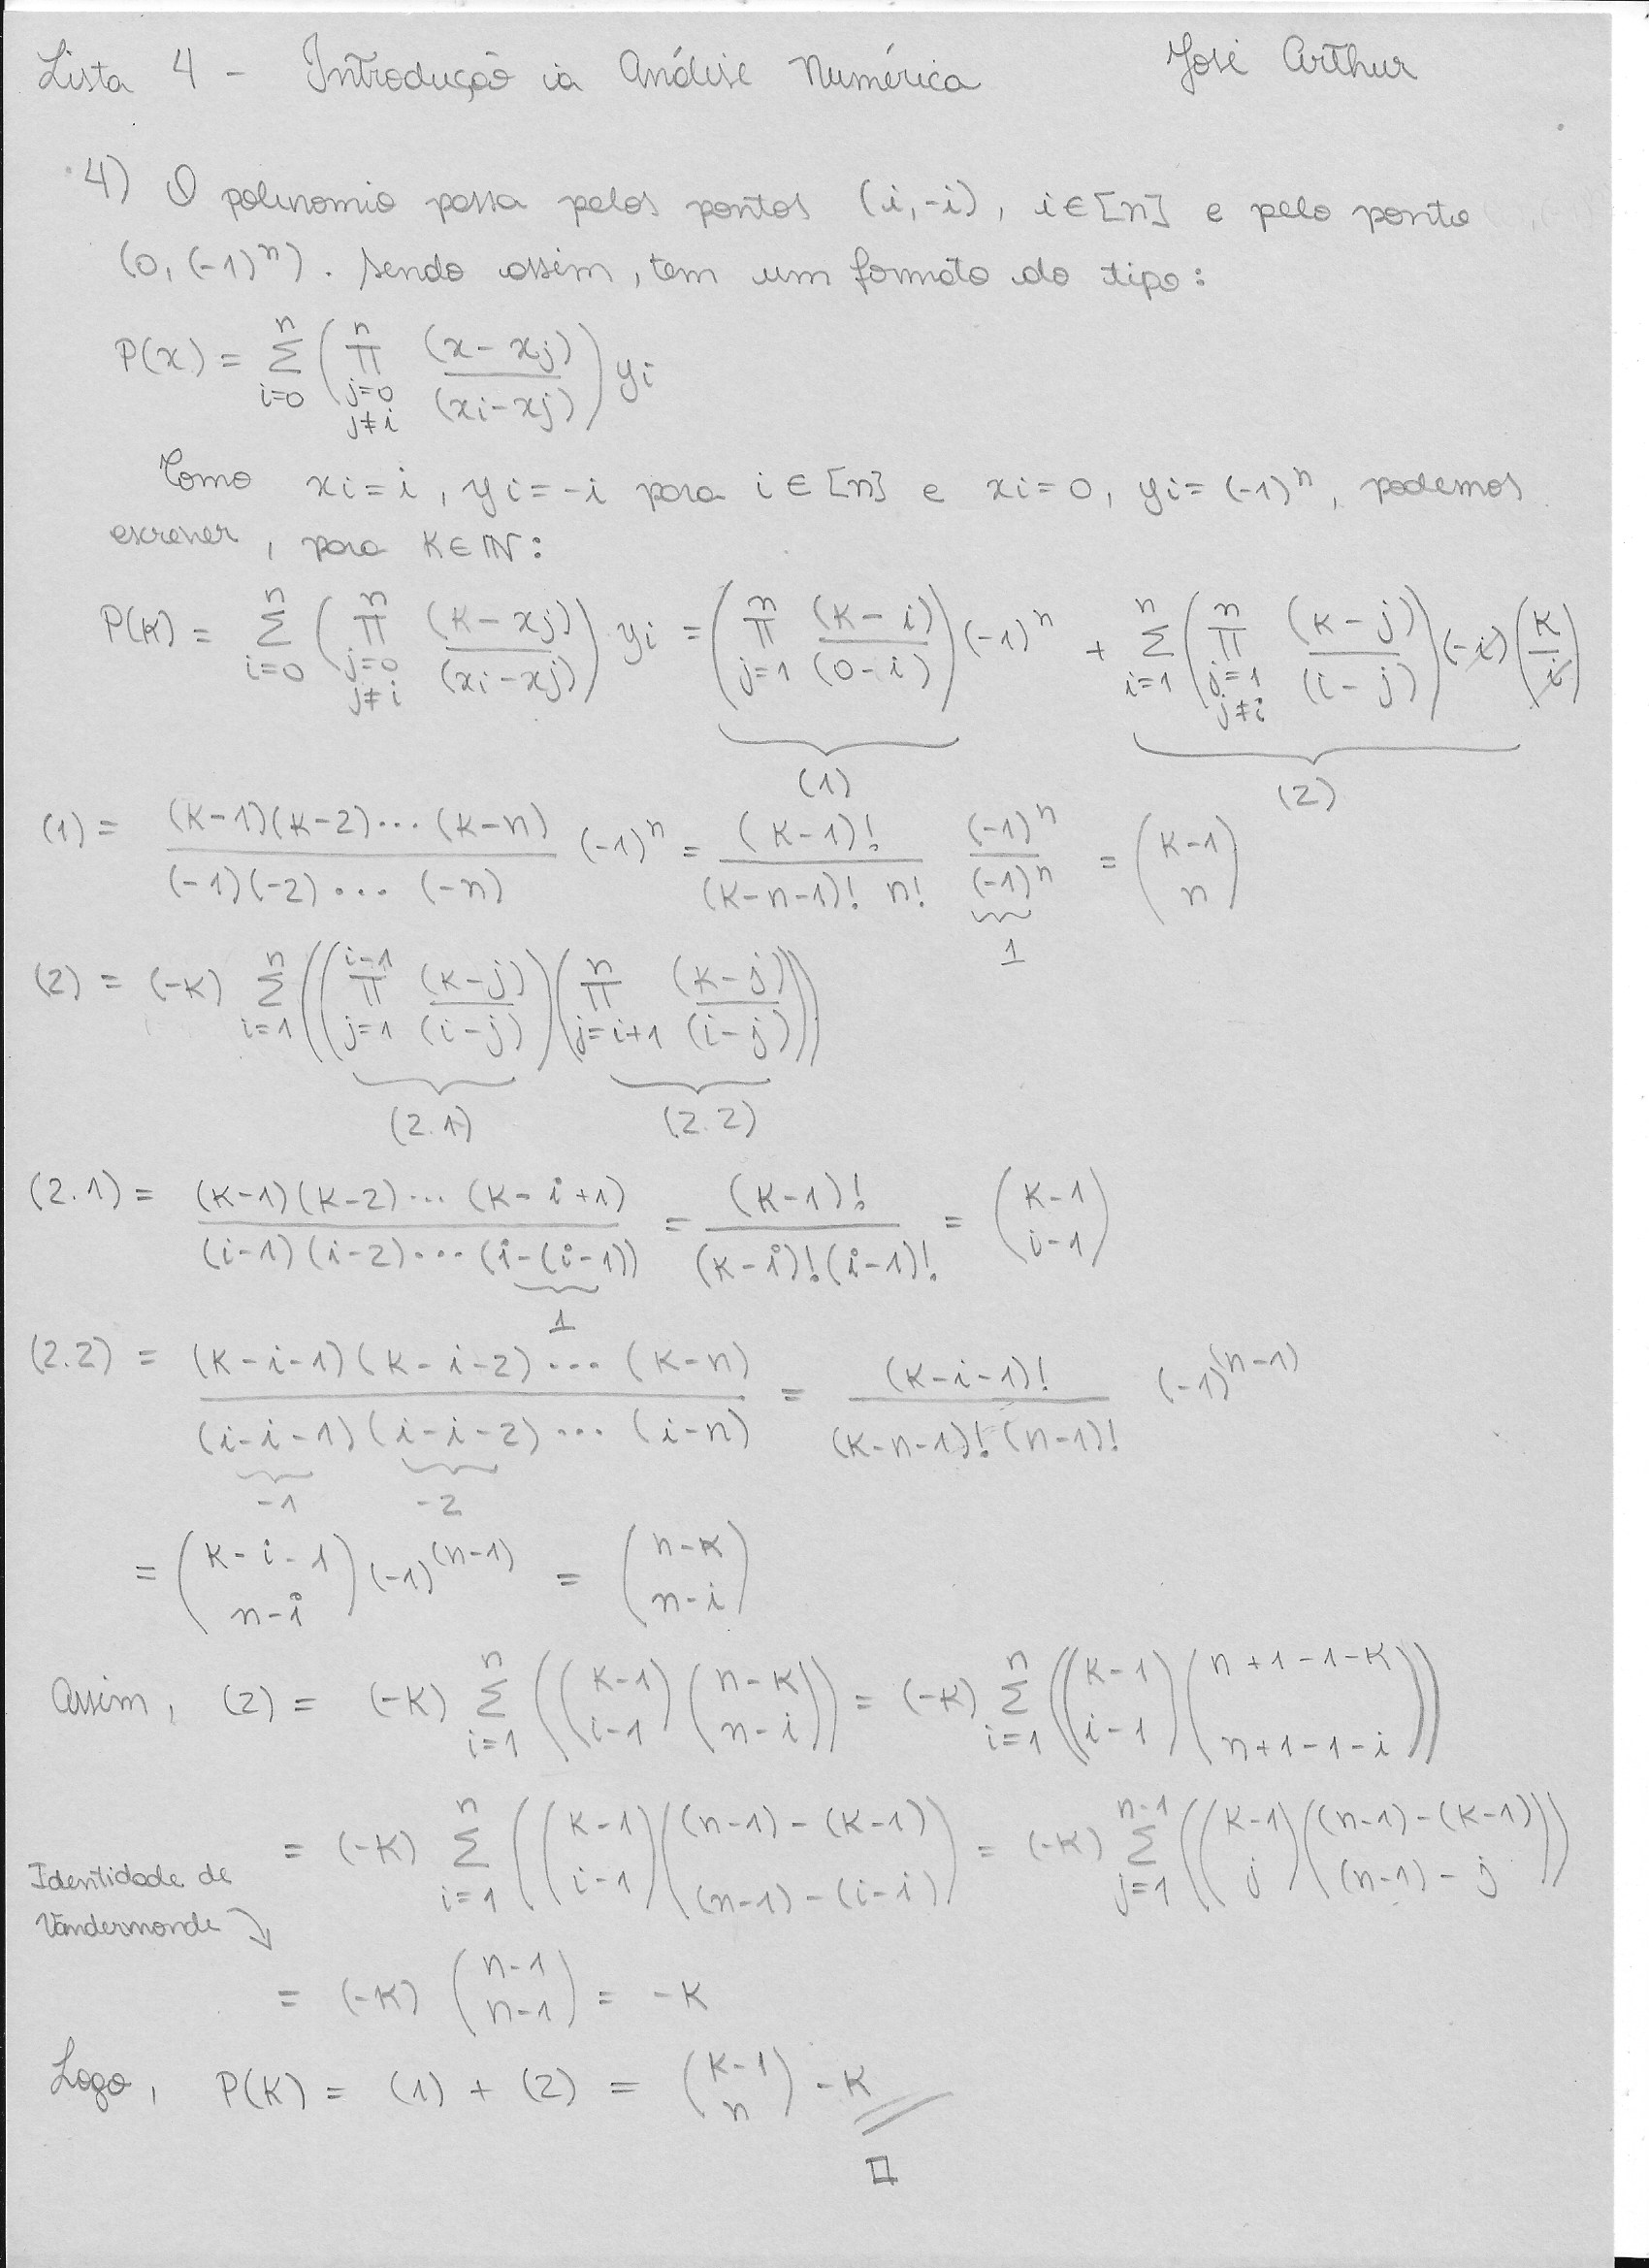 Lista 4 - Introdução à Análise Numérica José Arthur
4) O polinomio passa pelos pontos (i, -i), i ∈ [n] e pelo ponto
(0, (-1)^n). Sendo assim, tem um formato do tipo:
P(x) = Σ_{i=0}^{n} ( Π_{j=0, j≠i}^{n} (x - xj)/(xi - xj) ) yi
Como xi = i, yi = -i para i ∈ [n] e xi = 0, yi = (-1)^n, podemos
escrever, para K ∈ ℕ:
P(K) = Σ_{i=0}^{n} ( Π_{j=0, j≠i}^{n} (K - xj)/(xi - xj) ) yi = ( Π_{j=1}^{n} (K - i)/(0 - i) ) (-1)^n + Σ_{i=1}^{n} ( Π_{j=1, j≠i}^{n} (K - j)/(i - j) ) (-i) (K/i)
(1) (2)
(1) = (K-1)(K-2)···(K-n) / (-1)(-2)···(-n) (-1)^n = (K-1)! / (K-n-1)! n! (-1)^n/(-1)^n = (K-1 n)
1
(2) = (-K) Σ_{i=1}^{n} (( Π_{j=1}^{i-1} (K-j)/(i-j) )( Π_{j=i+1}^{n} (K-j)/(i-j) ))
(2.1) (2.2)
(2.1) = (K-1)(K-2)···(K-i+1) / (i-1)(i-2)···(i-(i-1)) = (K-1)! / (K-i)!(i-1)! = (K-1 i-1)
1
(2.2) = (K-i-1)(K-i-2)···(K-n) / (i-i-1)(i-i-2)···(i-n) = (K-i-1)! / (K-n-1)!(n-1)! (-1)^(n-1)
-1 -2
= (K-i-1 n-i) (-1)^(n-1) = (n-K n-i)
Assim, (2) = (-K) Σ_{i=1}^{n} ((K-1 i-1)(n-K n-i)) = (-K) Σ_{i=1}^{n} ((K-1 i-1)(n+1-1-K n+1-1-i))
= (-K) Σ_{i=1}^{n} ((K-1 i-1)((n-1)-(K-1) (n-1)-(i-1))) = (-K) Σ_{j=1}^{n-1} ((K-1 j)((n-1)-(K-1) (n-1)-j))
Identidade de
Vandermonde
= (-K) (n-1 n-1) = -K
Logo, P(K) = (1) + (2) = (K-1 n) - K
□